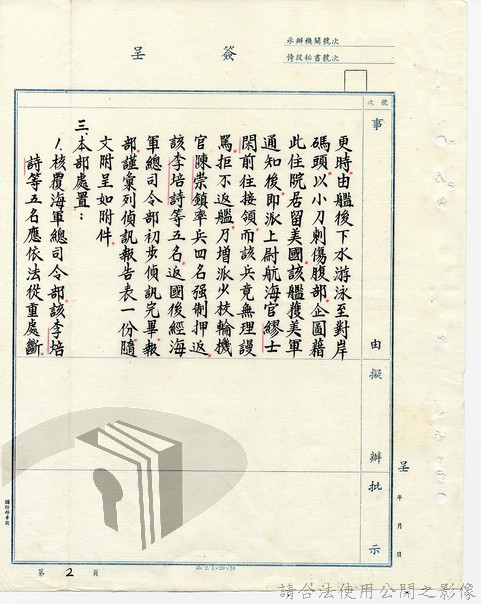 承辦機關號次
侍從秘書號次
簽呈
號次
事由
擬辦
批示
更時由艦後下水游泳至對岸
碼頭以小刀刺傷腹部企圖藉
此住院居留美國該艦獲美軍
通知後即派上尉航海官繆士
閑前往接領而該兵竟無理謾
罵拒不返艦乃增派少校輪機
官陳崇鎮率兵四名强制押返
該李培詩等五名返國後經海
軍總司令部初步偵訊完畢報
部謹彙列偵訊報告表一份隨
文附呈如附件
三、本部處置：
1.核覆海軍總司令部該李培
詩等五名應依法從重處斷
呈 年 月 日
第 2 頁
請合法使用公開之影像